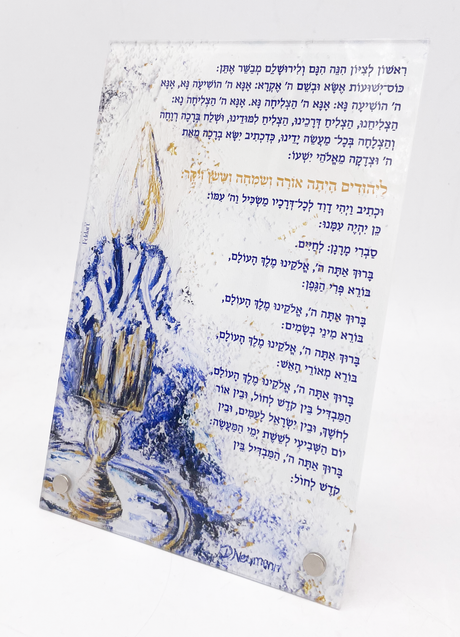 רִאשׁוֹן לְצִיּוֹן הִנֵּה הִנָּם וְלִירוּשָׁלַם מְבַשֵּׂר אֶתֵּן:
כּוֹס־יְשׁוּעוֹת אֶשָּׂא וּבְשֵׁם ה' אֶקְרָא: אָנָּא ה' הוֹשִׁיעָה נָּא, אָנָּא
ה' הוֹשִׁיעָה נָּא: אָנָּא ה' הַצְלִיחָה נָּא. אָנָּא ה' הַצְלִיחָה נָּא:
הַצְלִיחֵנוּ, הַצְלִיחַ דְּרָכֵינוּ, הַצְלִיחַ לִמּוּדֵינוּ, וּשְׁלַח בְּרָכָה רְוָחָה
וְהַצְלָחָה בְּכָל־ מַעֲשֵׂה יָדֵינוּ, כְּדִכְתִיב יִשָּׂא בְרָכָה מֵאֵת
ה' וּצְדָקָה מֵאֱלֹהֵי יִשְׁעוֹ:
לַיְּהוּדִים הָיְתָה אוֹרָה וְשִׂמְחָה וְשָׂשׂוֹן וִיקָר:
וּכְתִיב וַיְהִי דָוִד לְכָל־דְּרָכָיו מַשְׂכִּיל וַה' עִמּוֹ:
כֵּן יִהְיֶה עִמָּנוּ:
סַבְרִי מָרָנָן: לְחַיִּים.
בָּרוּךְ אַתָּה ה', אֱלֹקֵינוּ מֶלֶךְ הָעוֹלָם,
בּוֹרֵא פְּרִי הַגֶּפֶן:
בָּרוּךְ אַתָּה ה', אֱלֹקֵינוּ מֶלֶךְ הָעוֹלָם,
בּוֹרֵא מִינֵי בְשָׂמִים:
בָּרוּךְ אַתָּה ה', אֱלֹקֵינוּ מֶלֶךְ הָעוֹלָם,
בּוֹרֵא מְאוֹרֵי הָאֵשׁ:
בָּרוּךְ אַתָּה ה', אֱלֹקֵינוּ מֶלֶךְ הָעוֹלָם,
הַמַּבְדִּיל בֵּין קֹדֶשׁ לְחוֹל, וּבֵין אוֹר
לְחֹשֶׁךְ, וּבֵין יִשְׂרָאֵל לָעַמִּים, וּבֵין
יוֹם הַשְּׁבִיעִי לְשֵׁשֶׁת יְמֵי הַמַּעֲשֶׂה:
בָּרוּךְ אַתָּה ה', הַמַּבְדִּיל בֵּין
קֹדֶשׁ לְחוֹל: